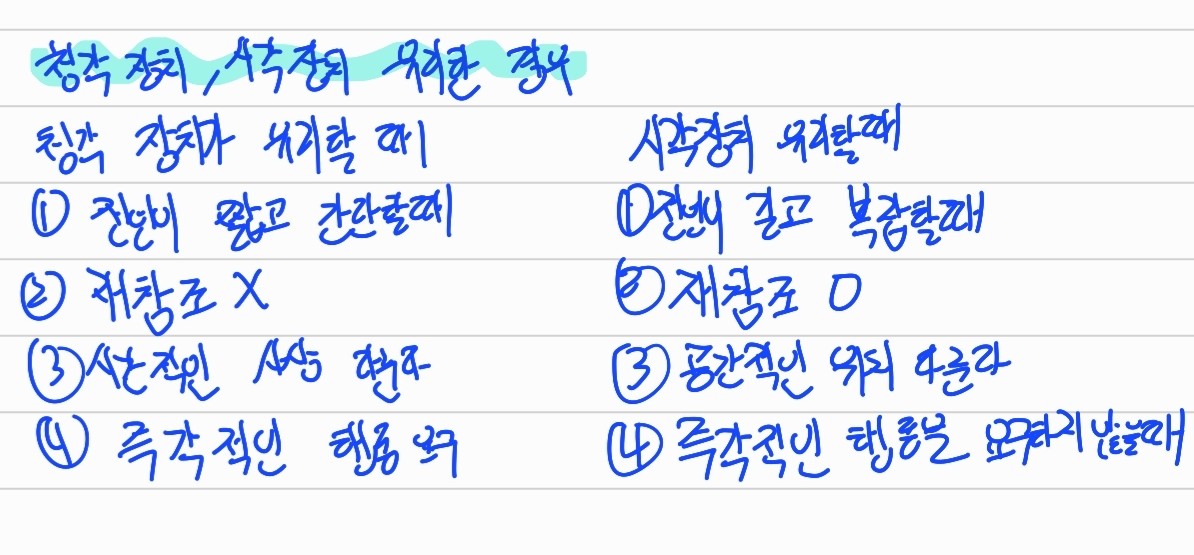 청각 장치, 시각장치 유리한 경우
청각 장치가 유리할 때
① 전언이 짧고 간단할때
② 재참조 X
③ 시간적인 사상
④ 즉각적인 행동 요구
시각장치 유리할때
① 전언이 길고 복잡할때
② 재참조 O
③ 공간적인 위치 다룰때
④ 즉각적인 행동을 요구하지 않을때